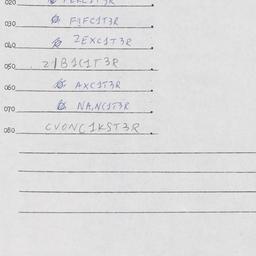 020
030 F1FC1T3R
040 ZEXC1T3R
050 21B1C1T3R
060 AXC1T3R
070 NA,NC1T3R
080 CVONC1KST3R